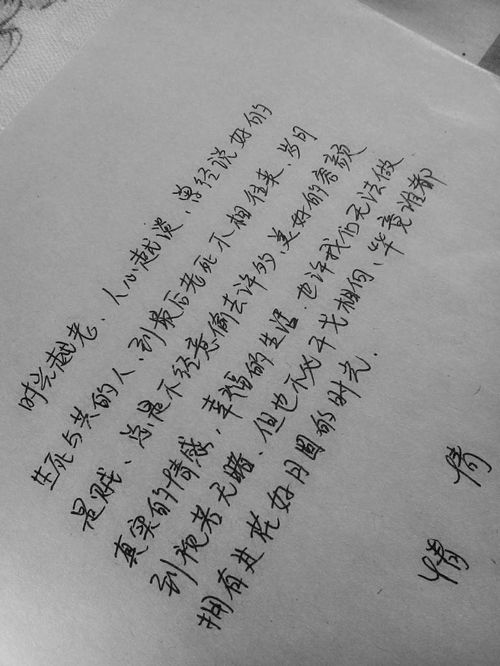 时光越老、人心越淡、曾经说好的
生死与共的人、到最后老死不相往来、岁月
是贼、总是不经意偷去许多、美好的容颜
真实的情感，幸福的生活．也许我们无法做
到视若无睹、但也不必干戈相向、毕竟谁都
拥有过花好月圆的时光．
情 倚